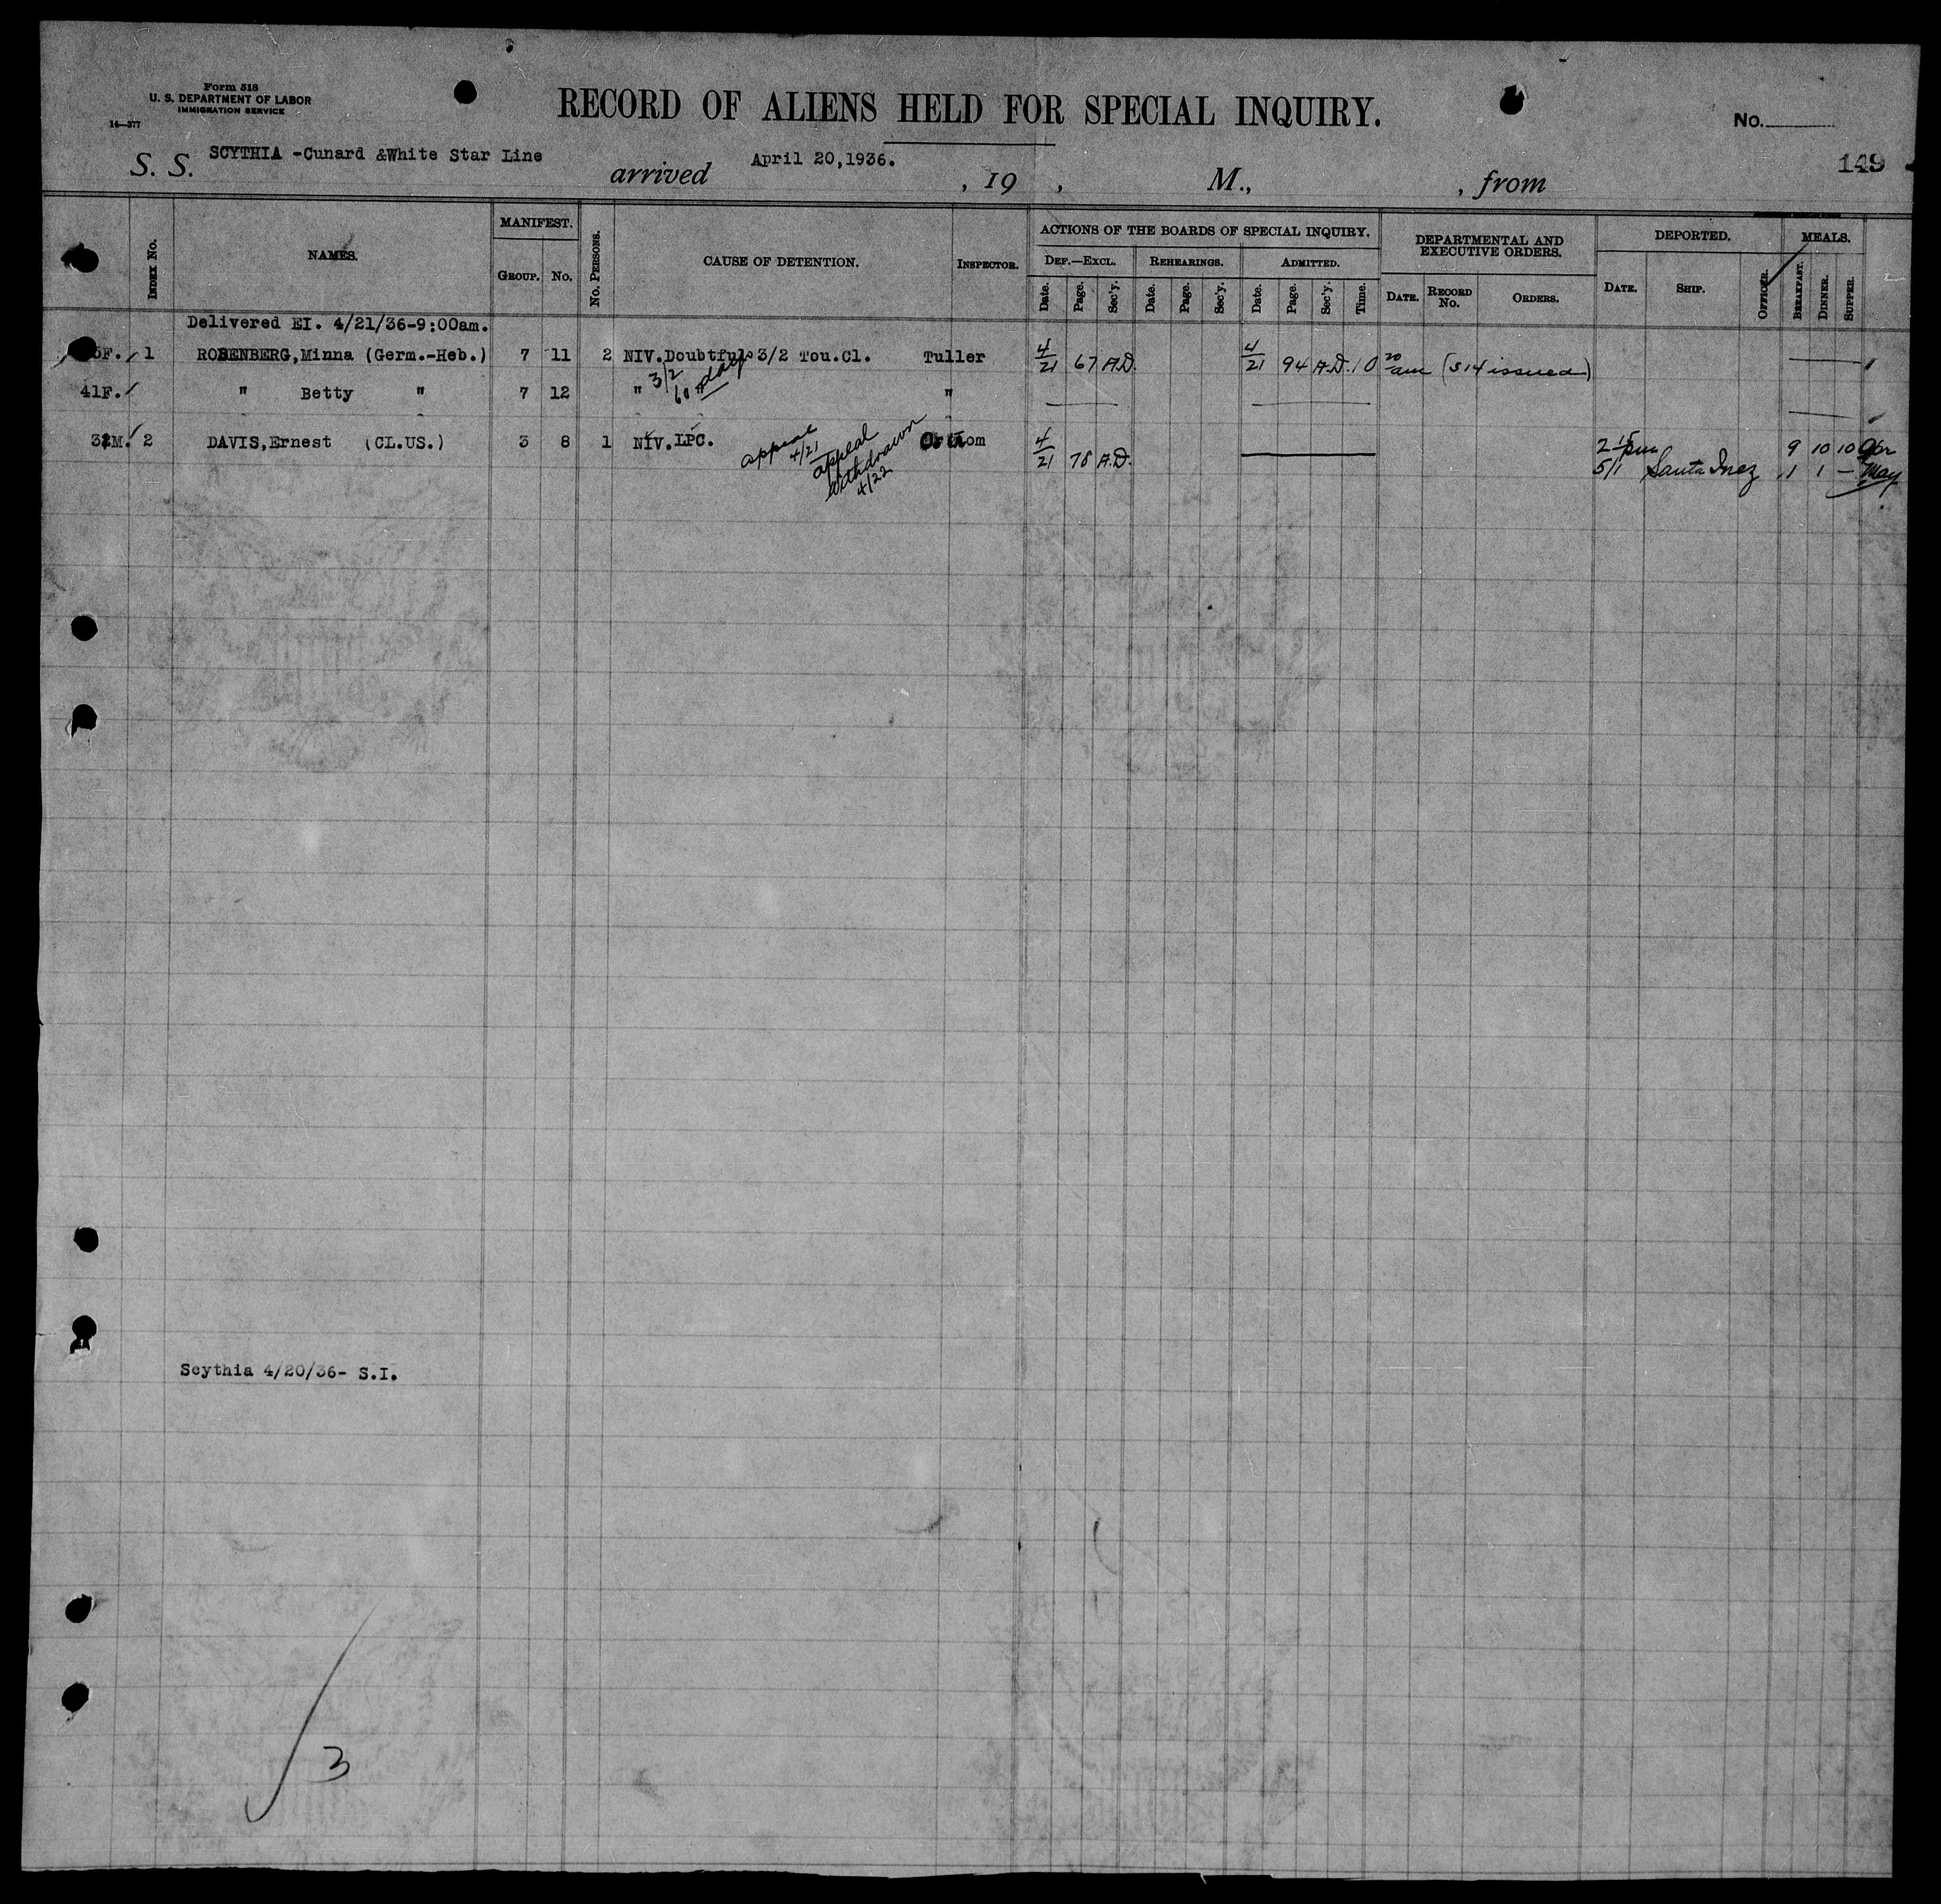 Form 518
U. S. DEPARTMENT OF LABOR
IMMIGRATION SERVICE
14—377
RECORD OF ALIENS HELD FOR SPECIAL INQUIRY.
No.
149
S. S. SCYTHIA -Cunard &White Star Line arrived April 20,1936. , 19 , M., , from
INDEX No. NAMES. MANIFEST. GROUP. No. No. PERSONS. CAUSE OF DETENTION. INSPECTOR. ACTIONS OF THE BOARDS OF SPECIAL INQUIRY. DEF.—EXCL. Date. Page. Sec'y. REHEARINGS. Date. Page. Sec'y. ADMITTED. Date. Page. Sec'y. Time. DEPARTMENTAL AND EXECUTIVE ORDERS. DATE. RECORD No. ORDERS. DEPORTED. DATE. SHIP. OFFICER. MEALS. BREAKFAST. DINNER. SUPPER.
Delivered EI. 4/21/36-9:00am.
F. 1 ROSENBERG,Minna (Germ.-Heb.) 7 11 2 NIV.Doubtful 3/2 Tou.Cl. Tuller 4/21 67 A.D. 4/21 94 A.D. 10 20 am (514 issued)
3/2
60 days
41F. " Betty " 7 12 " "
M. 2 DAVIS,Ernest (CL.US.) 3 8 1 NIV. LPC. 4/21 78 A.D. 2 15 pm 9 10 10 Apr
appeal 4/21
appeal withdrawn 4/22
5/1 Santa Inez 1 1 — May
Scythia 4/20/36- S.I.
3